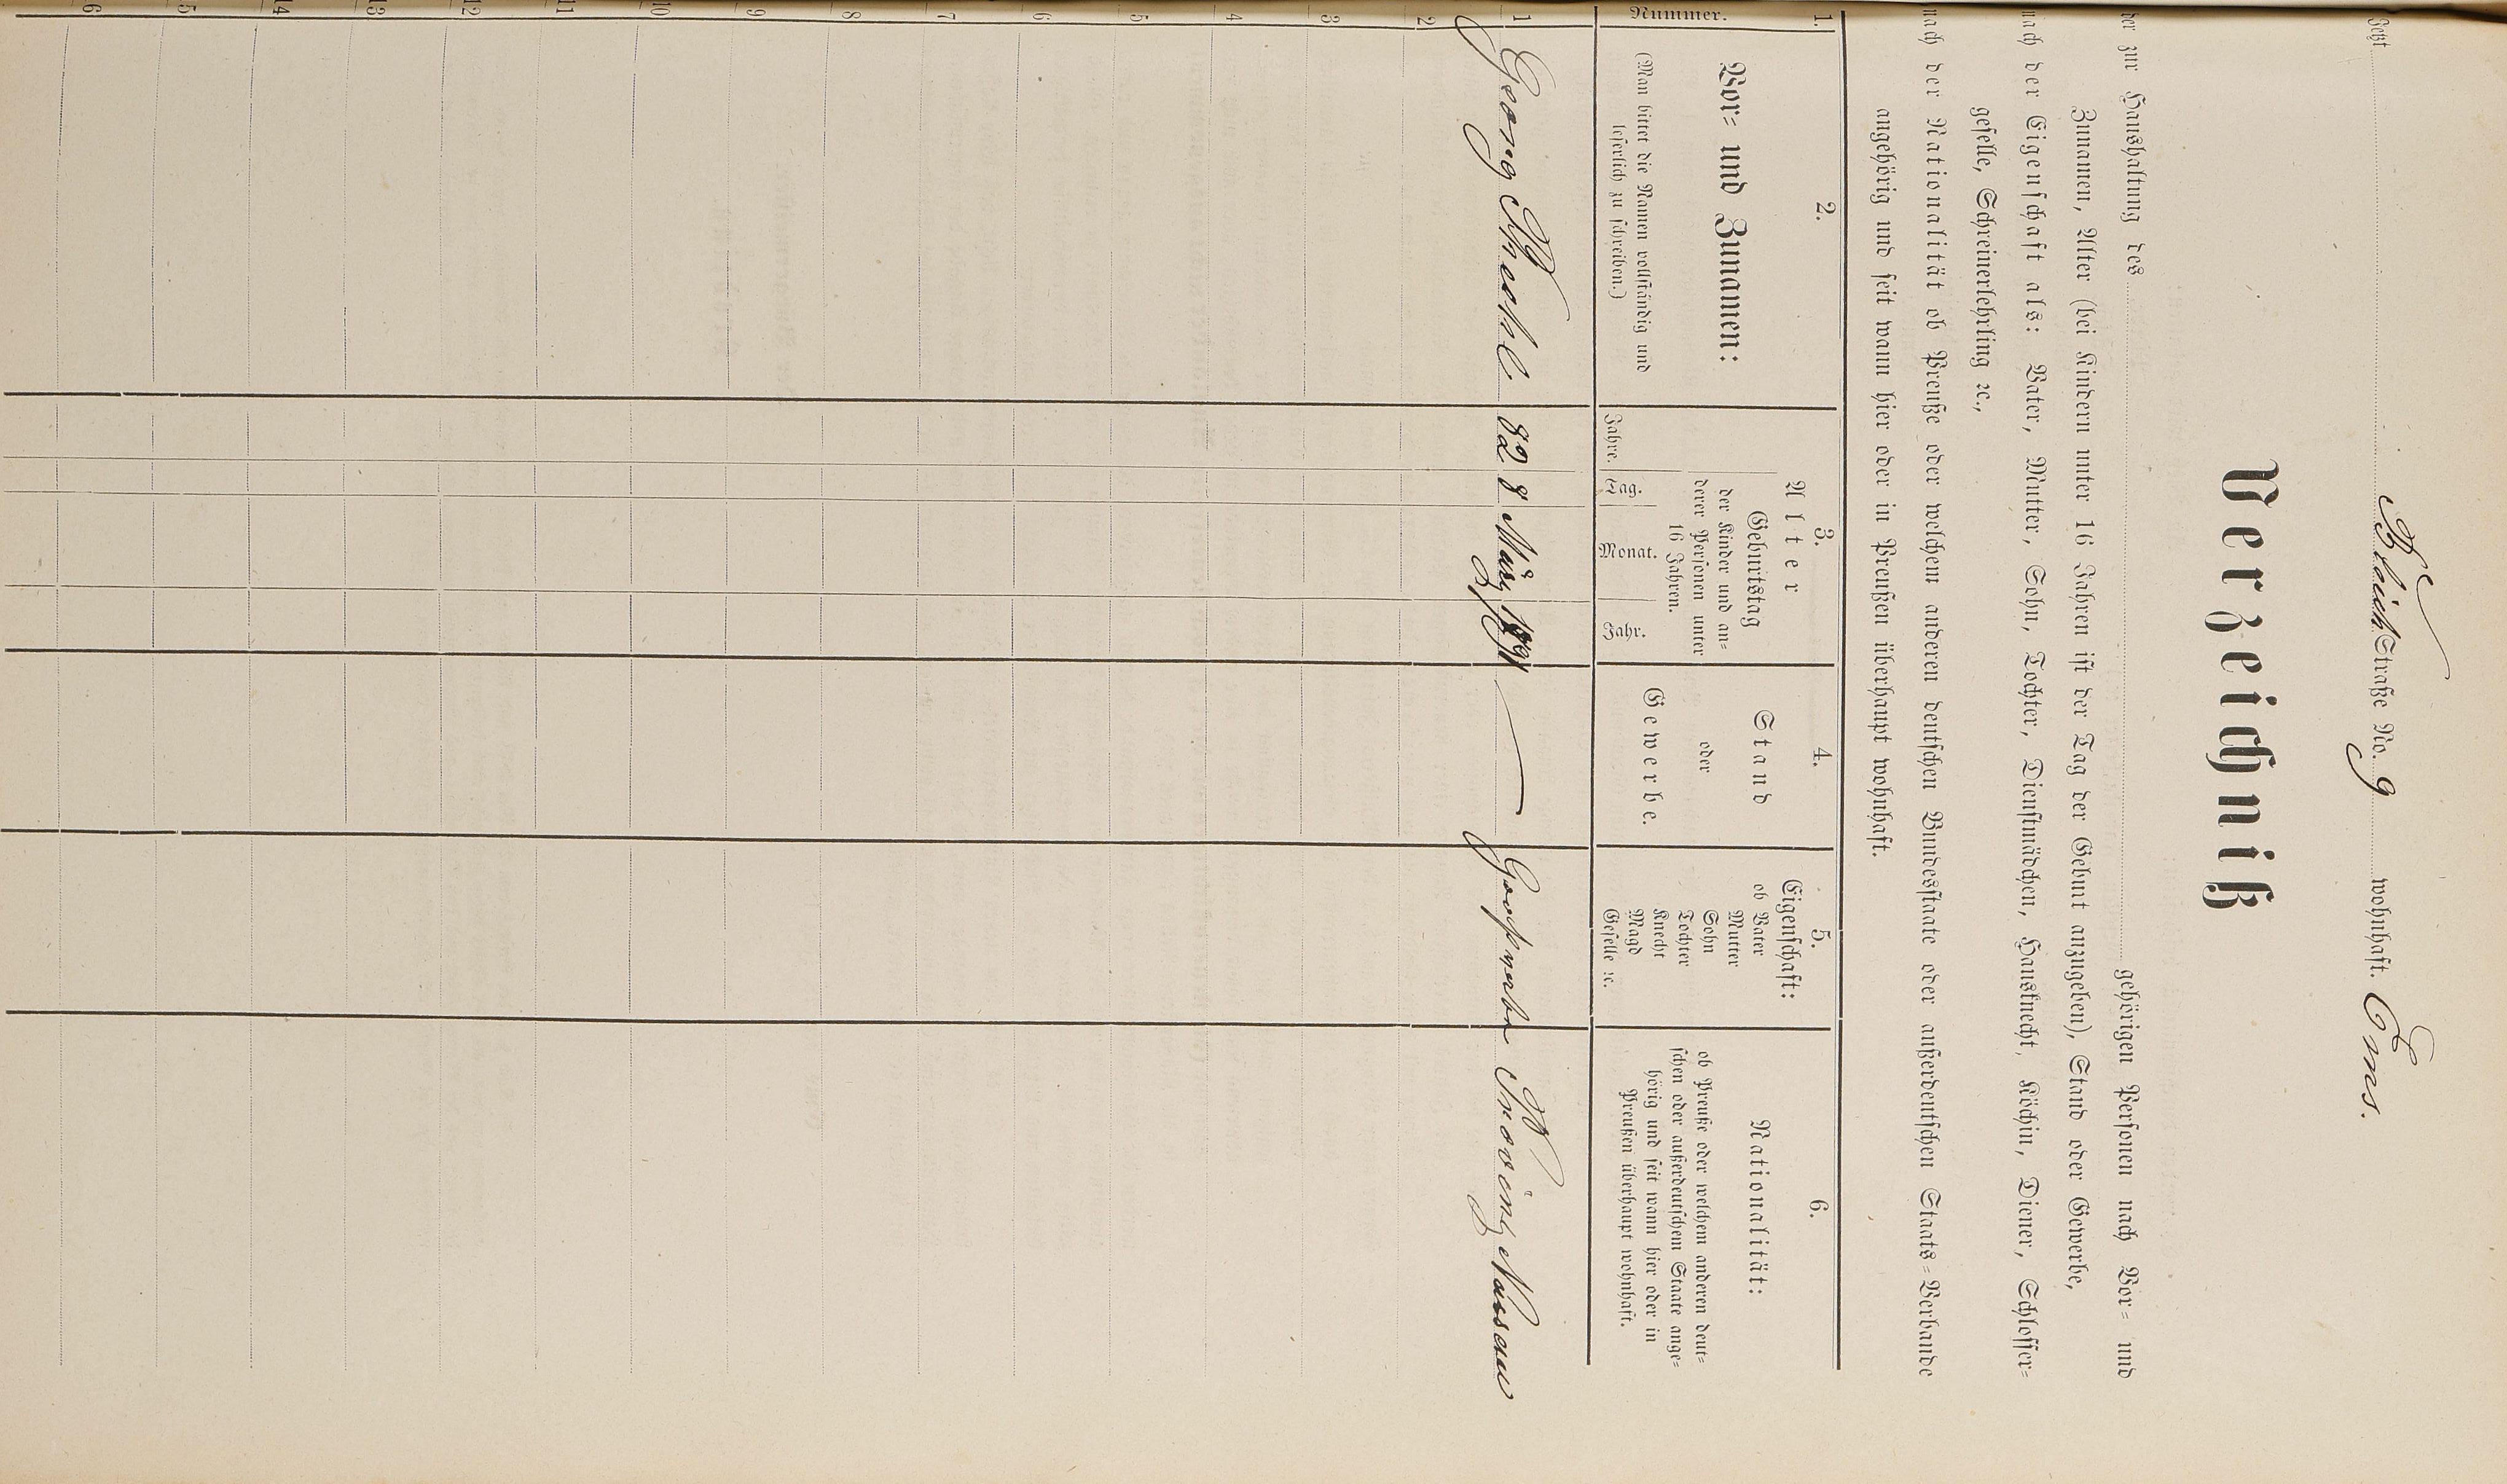 Jetzt Bleich Straße No. 9 wohnhaft. Ems.
Verzeichniß
der zur Haushaltung des gehörigen Personen nach Vor= und
Zunamen, Alter (bei Kindern unter 16 Jahren ist der Tag der Geburt anzugeben), Stand oder Gewerbe,
nach der Eigenschaft als: Vater, Mutter, Sohn, Tochter, Dienstmädchen, Hausknecht, Köchin, Diener, Schlosser=
geselle, Schreinerlehrling ꝛc.,
nach der Nationalität ob Preuße oder welchem anderen deutschen Bundesstaate oder außerdeutschen Staats=Verbande
angehörig und seit wann hier oder in Preußen überhaupt wohnhaft.
1.
Nummer.
2.
Vor= und Zunamen:
(Man bittet die Namen vollständig und
leserlich zu schreiben.)
3.
Alter
Geburtstag
der Kinder und an=
derer Personen unter
16 Jahren.
Jahre. Tag. Monat. Jahr.
4.
Stand
oder
Gewerbe.
5.
Eigenschaft:
ob Vater
Mutter
Sohn
Tochter
Knecht
Magd
Geselle ꝛc.
6.
Nationalität:
ob Preuße oder welchem anderen deut=
schen oder außerdeutschem Staate ange=
hörig und seit wann hier oder in
Preußen überhaupt wohnhaft.
1 Georg 82 8 März — Provinz Nassau
2
3
4
5
6
7
8
9
10
11
12
13
14
5
6